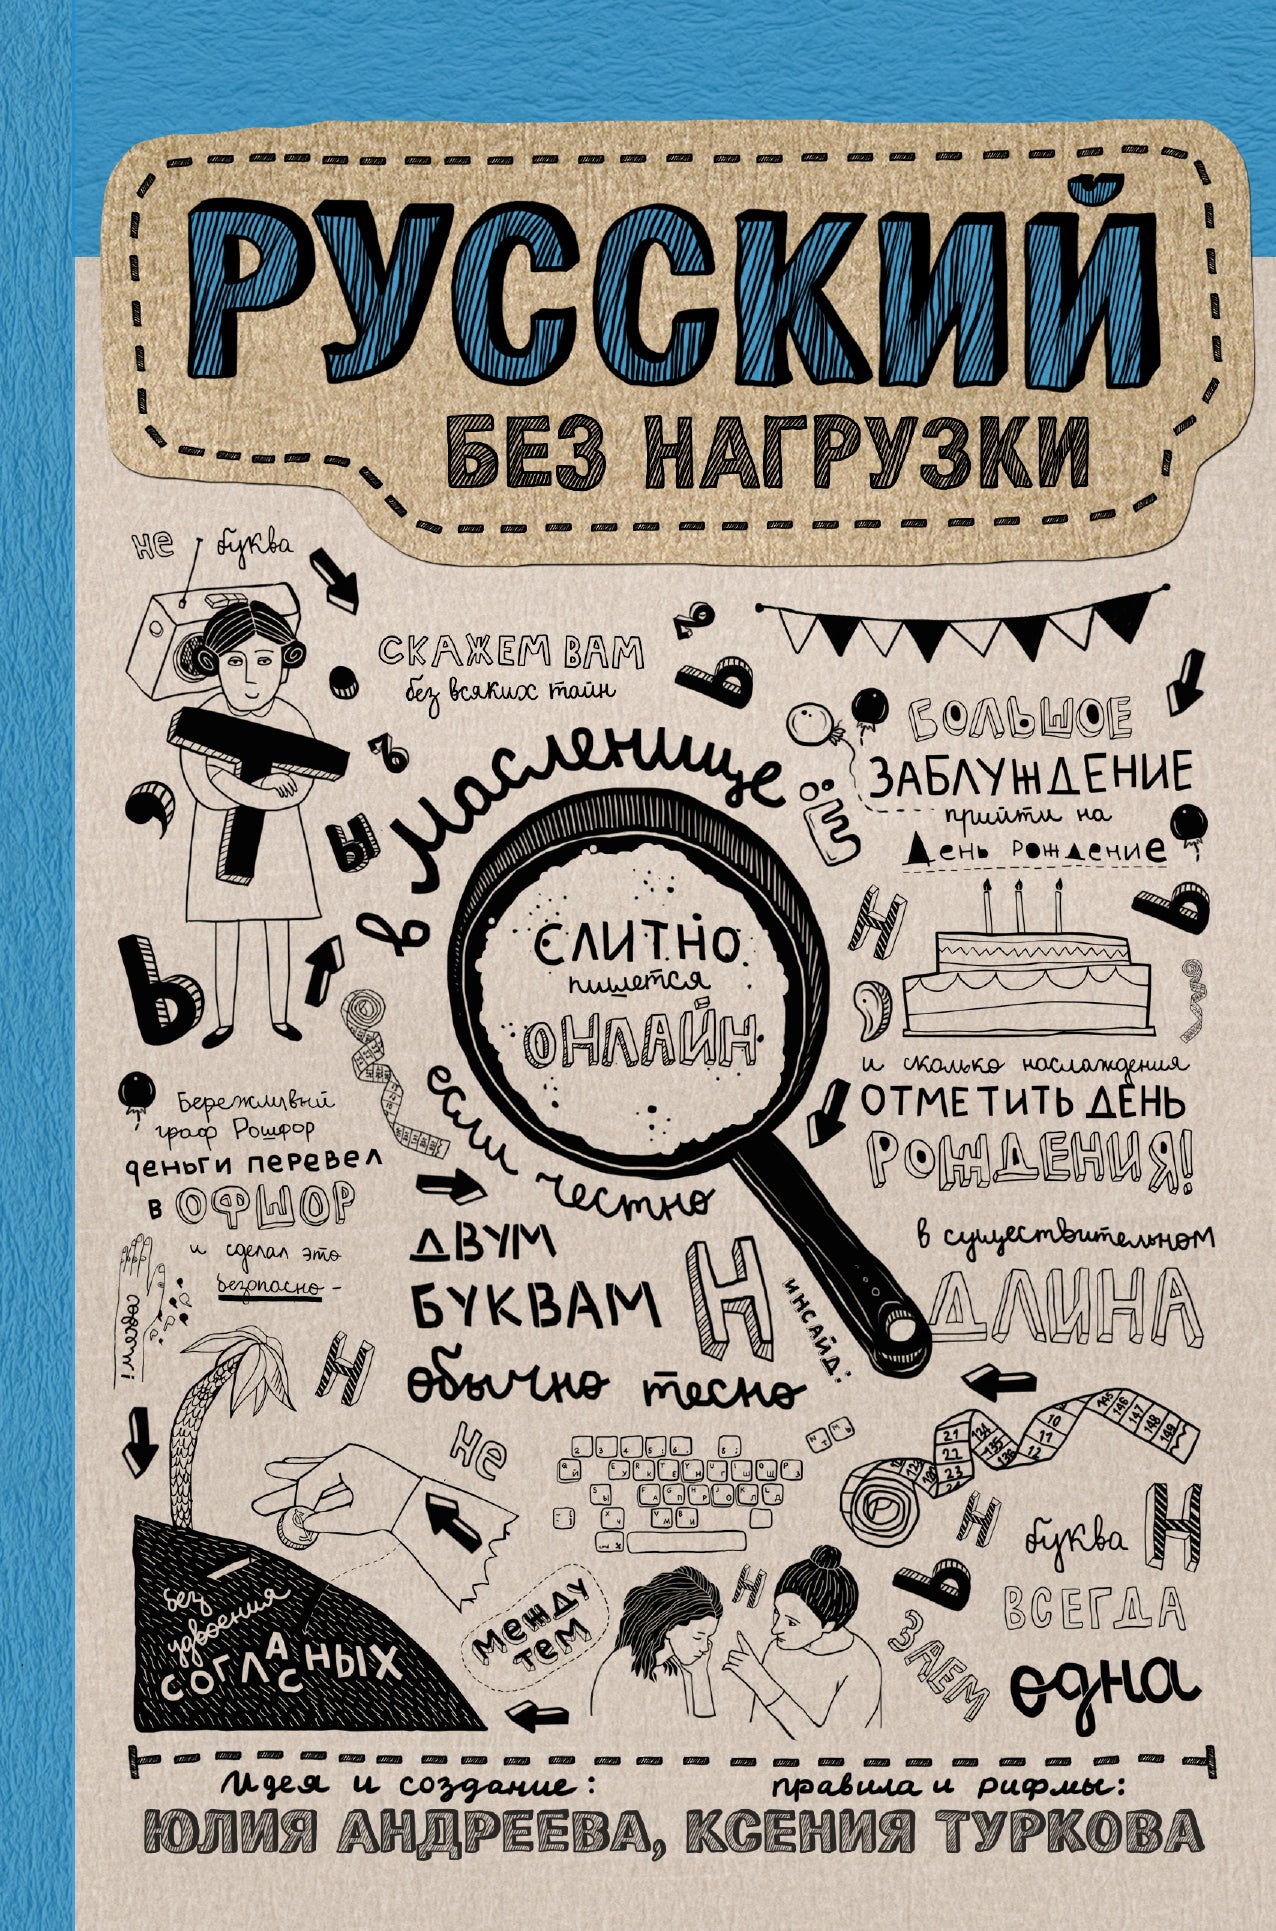 РУССКИЙ
БЕЗ НАГРУЗКИ
не буква
Т
СКАЖЕМ ВАМ
без всяких тайн
в Масленице
СЛИТНО
пишется
ОНЛАЙН
если честно
ДВУМ
БУКВАМ Н
обычно тесно
БОЛЬШОЕ
ЗАБЛУЖДЕНИЕ
прийти на
День рождение
и сколько наслаждения
ОТМЕТИТЬ ДЕНЬ
РОЖДЕНИЯ!
Бережливый
граф Рошфор
деньги перевел
в ОФШОР
и сделал это
безопасно –
без
удвоения
СОГЛАСНЫХ
инсайд:
в существительном
ДЛИНА
буква Н
ВСЕГДА
одна
не
между
тем
Н
Ь
ЗАЕМ
Идея и создание:
правила и рифмы:
ЮЛИЯ АНДРЕЕВА, КСЕНИЯ ТУРКОВА